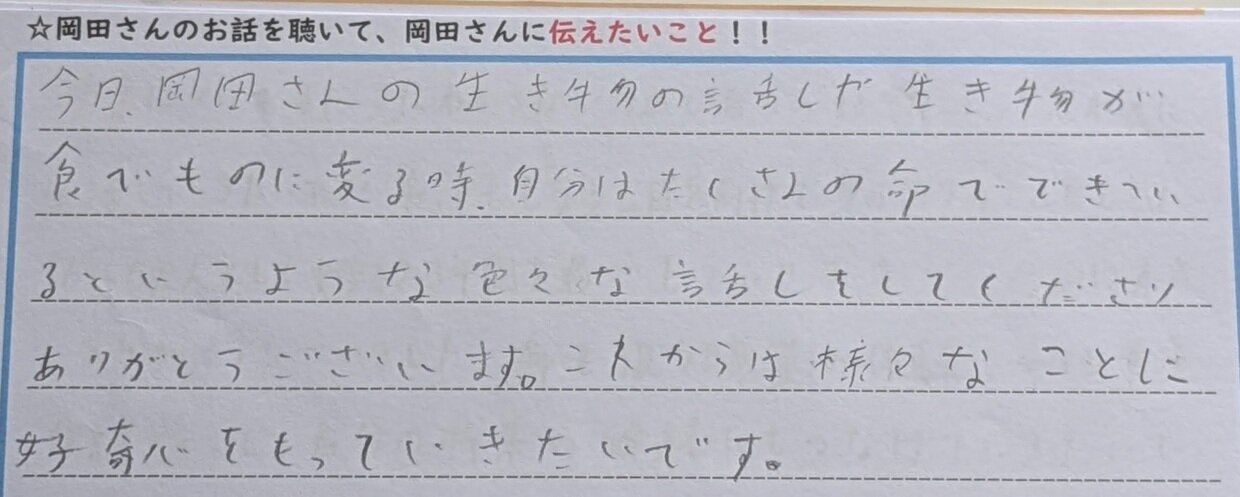 ☆岡田さんのお話を聴いて、岡田さんに伝えたいこと！！
今日、岡田さんの生き物の話しや生き物が
食べものに変る時、自分はたくさんの命でできてい
るというような色々な話しをしてくださり
ありがとうございます。これからは様々なことに
好奇心をもっていきたいです。